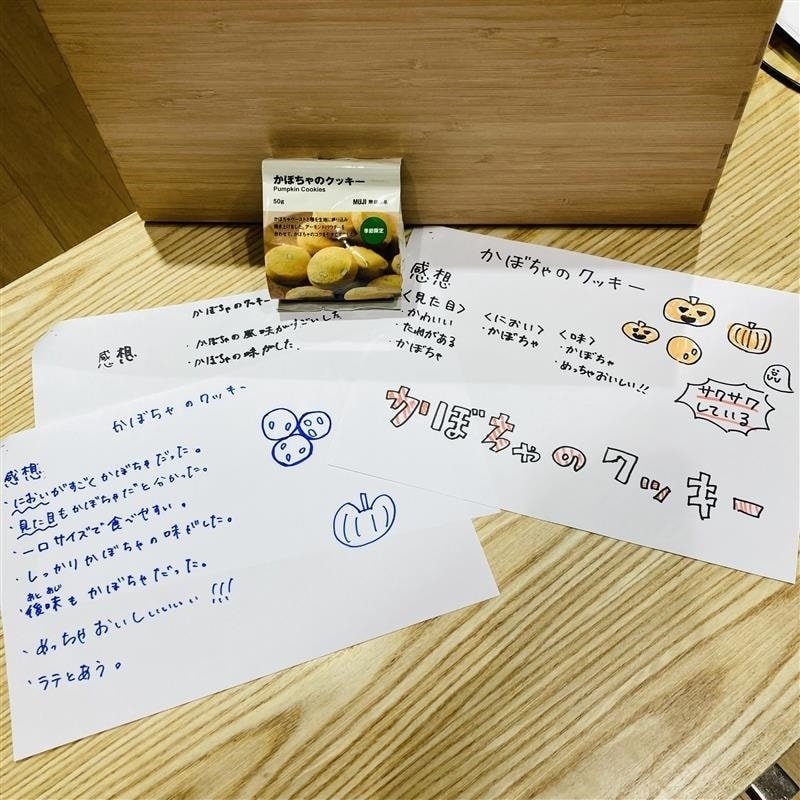 かぼちゃのクッキー
Pumpkin Cookies
50g
MUJI 無印良品
かぼちゃペーストと種を生地に練り込み
焼き上げました。アーモンドパウダーを
合わせて、かぼちゃのコクを
季節限定
かぼちゃのクッキー
感想
・かぼちゃの風味がすごいした
・かぼちゃの味がした
かぼちゃのクッキー
感想
<見た目>
・かわいい
・たねがある
・かぼちゃ
<におい>
・かぼちゃ
<味>
・かぼちゃ
・めっちゃおいしい!!
サクサク
している
かぼちゃのクッキー
かぼちゃのクッキー
感想
・においがすごくかぼちゃだった。
・見た目もかぼちゃだと分かった。
・一口サイズで食べやすい。
・しっかりかぼちゃの味がした。
あと あじ
・後味もかぼちゃだった。
・めっちゃおいしいいいい!!!
・ラテとあう。